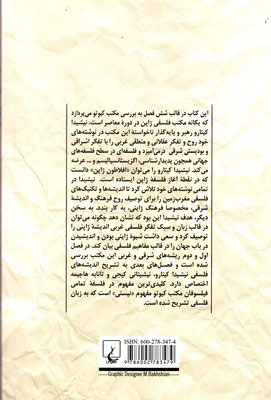 این کتاب در قالب شش فصل به بررسی مکتب کیوتو می‌پردازد
که یگانه مکتب فلسفی ژاپن در دورهٔ معاصر است. نیشیدا
کیتارو رهبر و پایه‌گذار ناخواستهٔ این مکتب در نوشته‌های
خود روح و تفکر عقلانی و منطقی غربی را با تفکر اشراقی
و بودیستی شرقی درمی‌آمیزد و فلسفه‌ای در سطح فلسفه‌های
جهانی همچون پدیدارشناسی، اگزیستانسیالیسم و ... عرضه
می‌کند. نیشیدا کیتارو را می‌توان «افلاطون ژاپن» دانست
که در نقطهٔ آغاز فلسفهٔ ژاپن ایستاده است. نیشیدا در
تمامی نوشته‌های خود تلاش کرد تا اندیشه‌ها و تکنیک‌های
فلسفی مغرب‌زمین را برای توصیف روح فرهنگ و اندیشهٔ
شرقی، مخصوصاً فرهنگ ژاپنی، به کار بندد. به سخن
دیگر، هدف نیشیدا این بود که نشان دهد چگونه می‌توان
در قالب زبان و سبک تفکر فلسفی غربی اندیشهٔ ژاپنی را
توصیف کرد و سعی داشت شیوهٔ ژاپنی بودن و اندیشیدن
در باب جهان را در قالب مفاهیم فلسفی بیان کند. در فصل
اول و دوم ریشه‌های شرقی و غربی این مکتب بررسی
شده است و فصل‌های بعدی به تشریح اندیشه‌های
فلسفی نیشیدا کیتارو، نیشیتانی کیجی و تانابه هاجیمه
اختصاص دارد. کلیدی‌ترین مفهوم در فلسفهٔ تمامی
فیلسوفان مکتب کیوتو مفهوم «نیستی» است که به زبان
فلسفی تشریح شده است.
ISBN: 600-278-347-4
9 786002 783479
Graphic Designer:M.Bakhshian